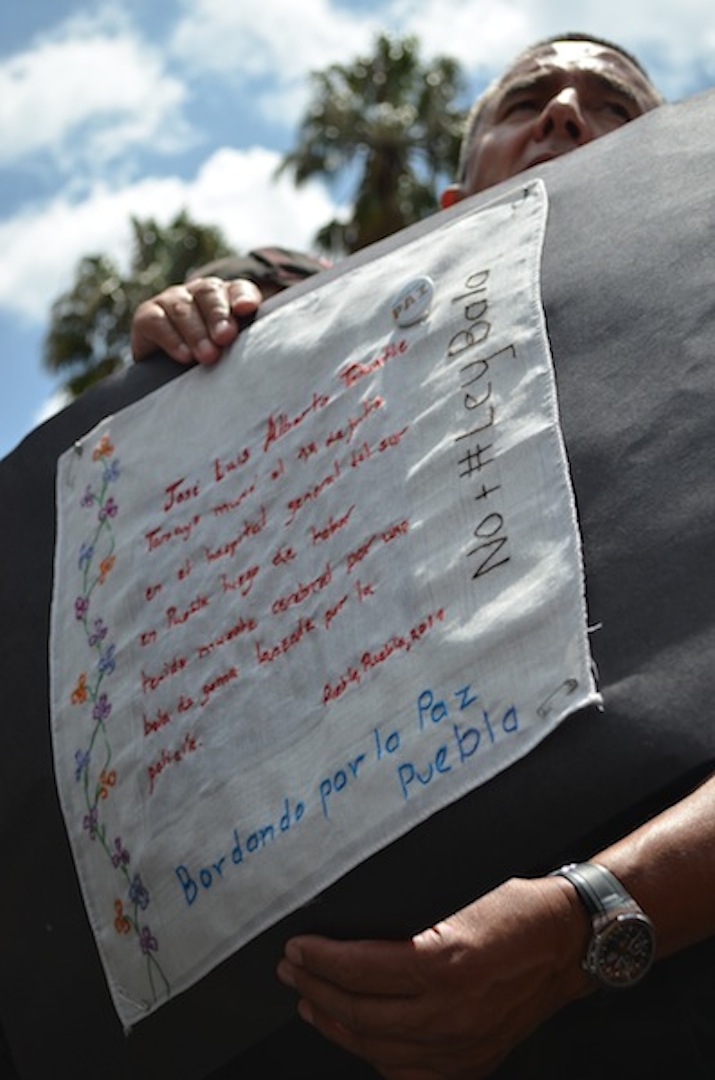 PAZ
José Luis Alberto Tehuatlie
Tamayo murió el 19 de julio
en el hospital general del sur
en Puebla luego de haber
tenido muerte cerebral por una
bala de goma lanzada por la
policía.
Puebla, Puebla, 2014
No + #LeyBala
Bordando por la Paz
Puebla